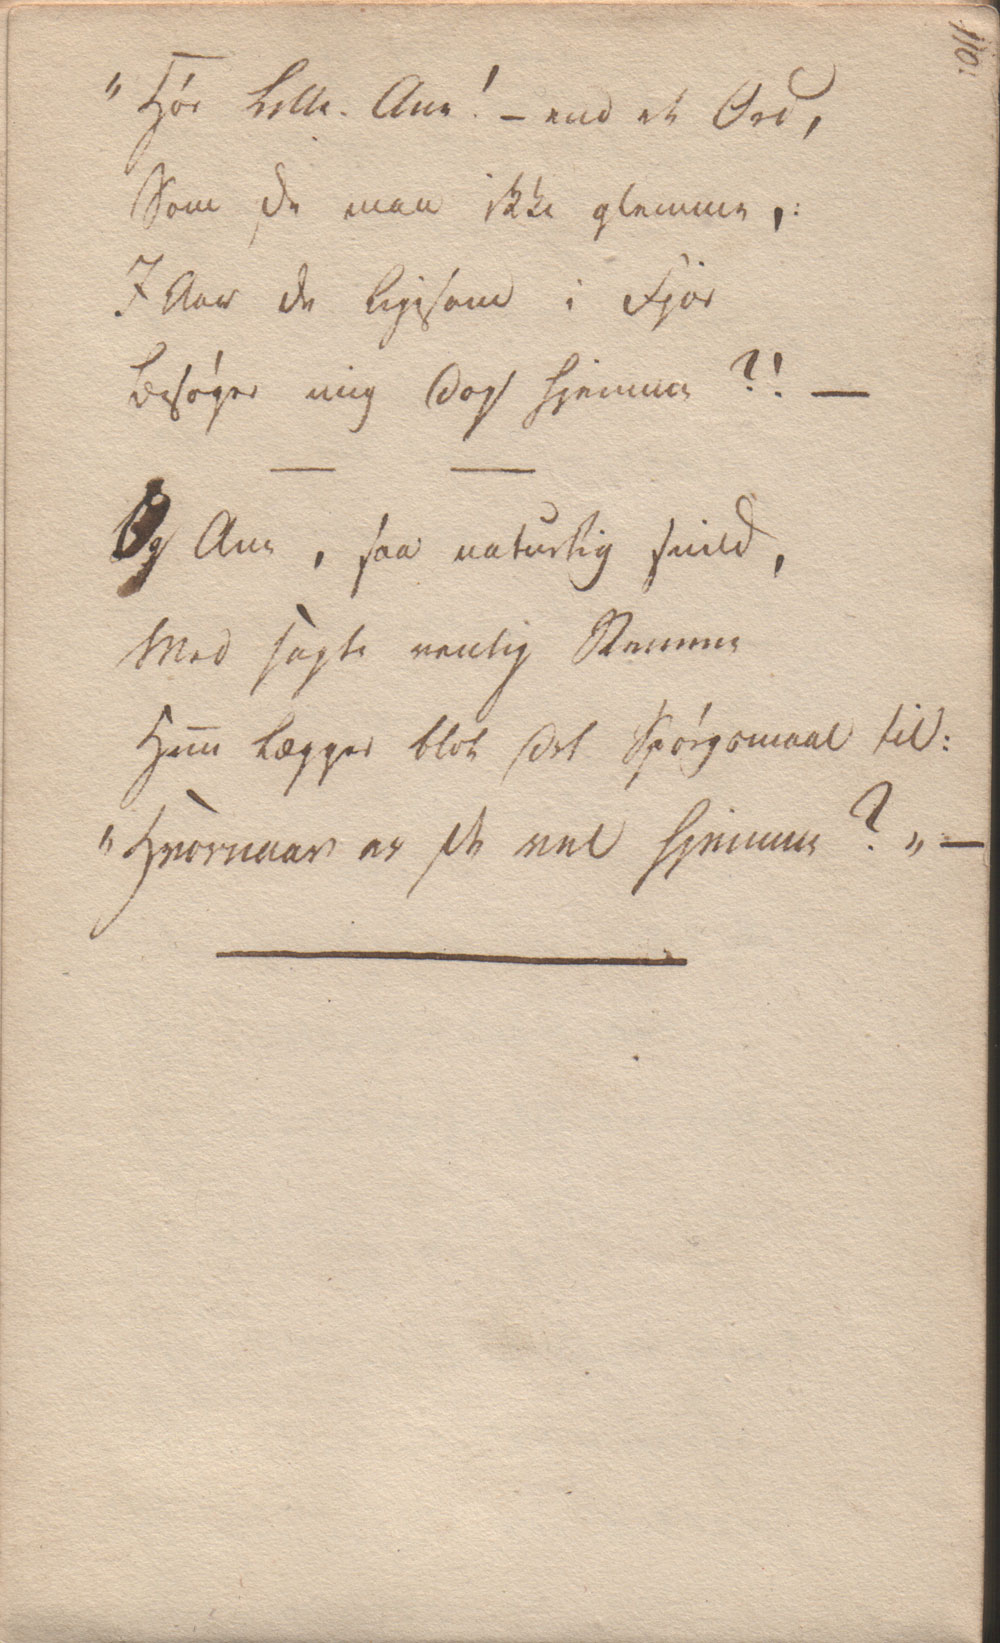 110.
"Hør Lille Ane! – end et Ord,
Som De maa ikke glemme,:
I Aar De ligesom i Fjor
Besøger mig dog hjemme?! —
— —
Og Ane, saa naturlig snild,
Med sagte venlig Stemme
Hun lægger blot det Spørgsmaal til:
"Hvornaar er De vel hjemme?" —